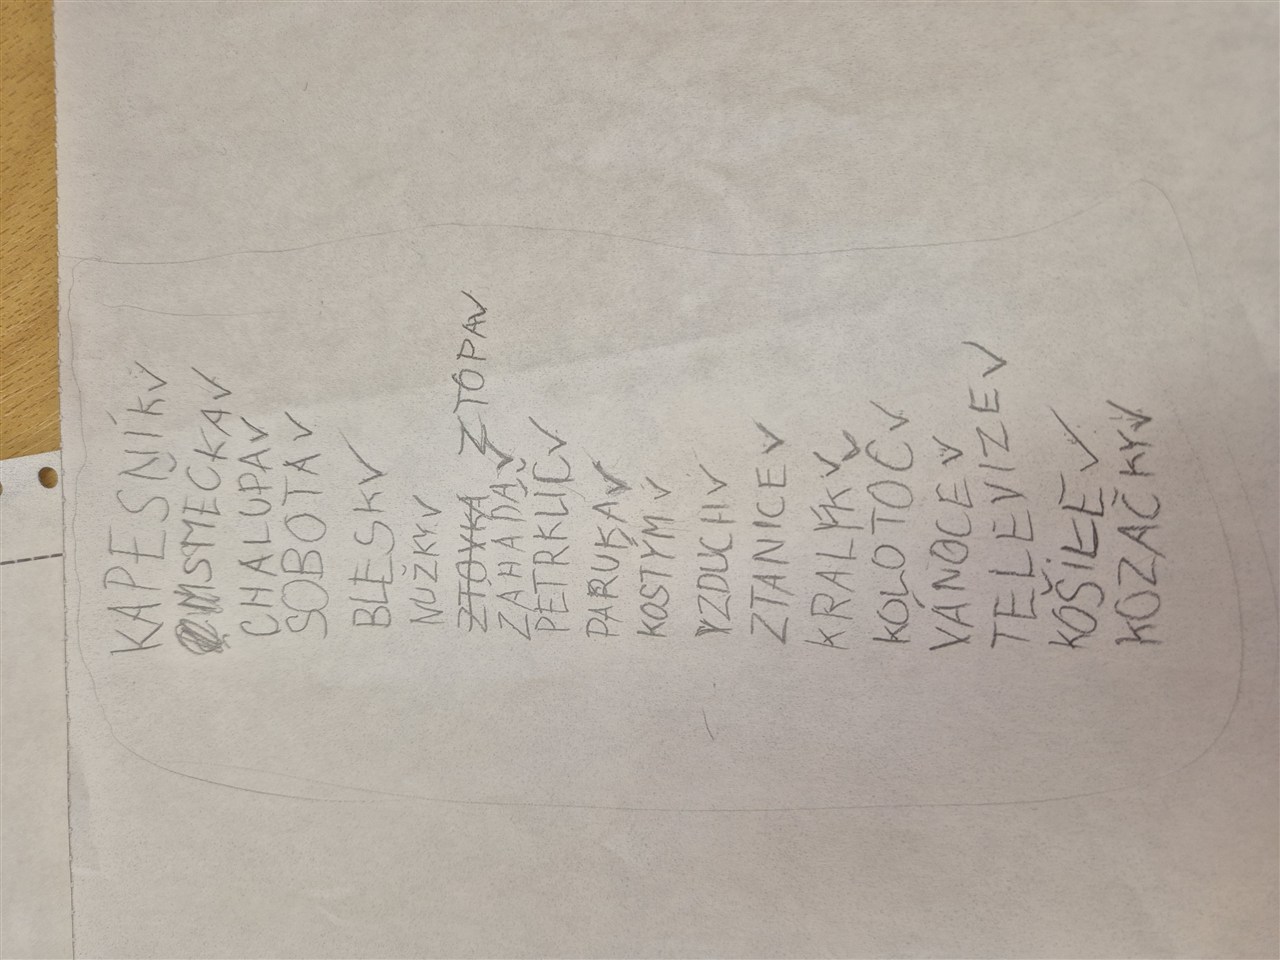 KAPESNÍK ✓
SMEČKA ✓
CHALUPA ✓
SOBOTA ✓
BLESK ✓
NUŽKY ✓
ZTOVKA ZTOPA ✓
ZAHADA ✓
PETRKLIČ ✓
PARUKA ✓
KOSTÝM ✓
VZDUCH ✓
ZTANICE ✓
KRALYK ✓
KOLOTOČ ✓
VANOCE ✓
TELEVIZE ✓
KOŠILE ✓
KOZAČKY ✓